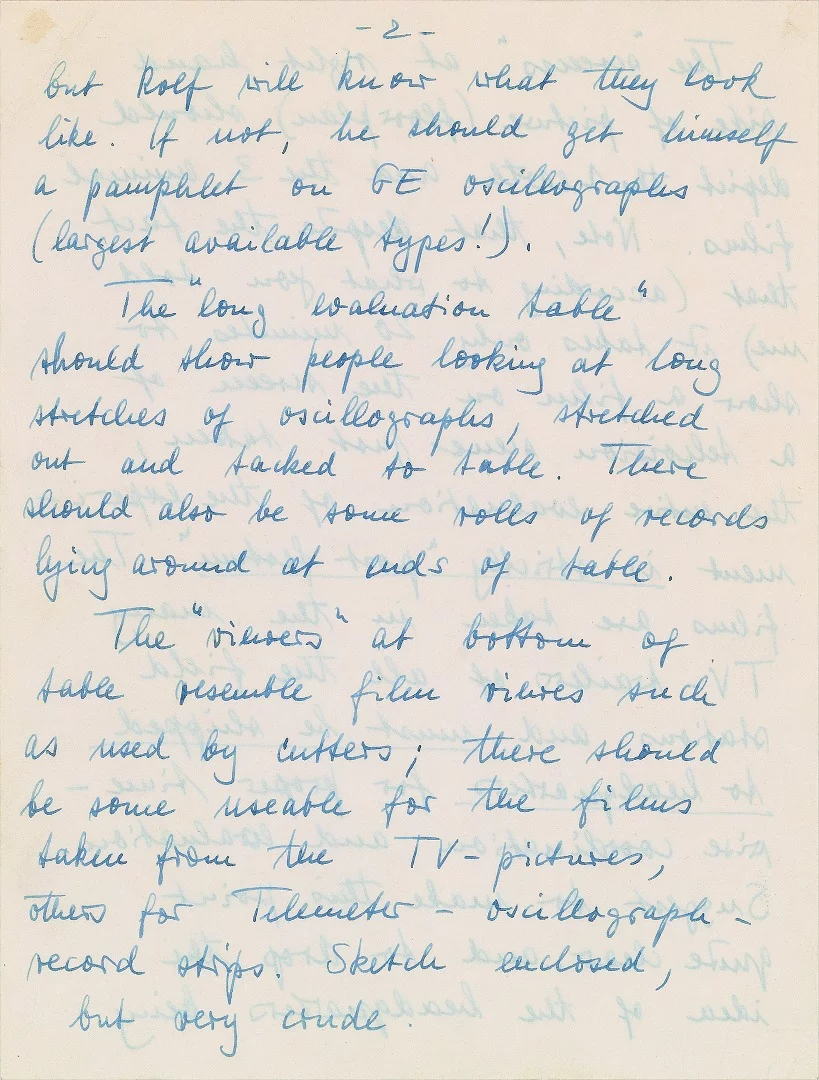 - 2 -
but Rolf will know what they look
like. If not, he should get himself
a pamphlet on GE oscillographs
(largest available types!).
The "long evaluation table"
should show people looking at long
stretches of oscillographs, stretched
out and tacked to table. There
should also be some rolls of records
lying around at ends of table.
The "viewers" at bottom of
table resemble film viewes such
as used by cutters; there should
be some useable for the films
taken from the TV-pictures,
others for Telemeter - oscillograph -
record strips. Sketch enclosed,
but very crude.